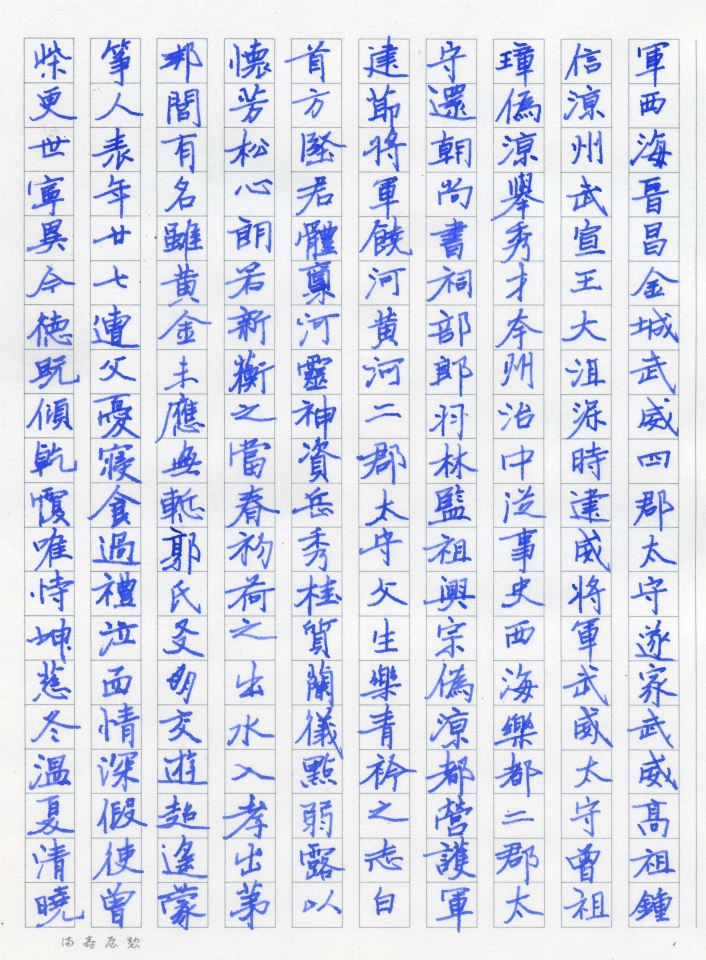 軍西海晉昌金城武威四郡太守遂家武威高祖鍾
信涼州武宣王大沮渠時建威将軍武威太守曾祖
璋偽涼舉秀才本州治中從事史西海樂都二郡太
守還朝尚書祠部郎羽林監祖興宗偽涼都營護軍
建節将軍饒河黄河二郡太守父生樂青衿之志白
首方堅君體稟河靈神資岳秀桂質蘭儀點弱露以
懷芳松心朗若新蘅之當春初荷之出水入孝出苐
邦閭有名雖黄金未應無慙郭氏友朋交遊超邈蒙
筝人表年廿七遭父憂寢食過禮泣面情深假使曾
柴更世寧異今德既傾乾覆唯恃坤慈冬温夏清曉